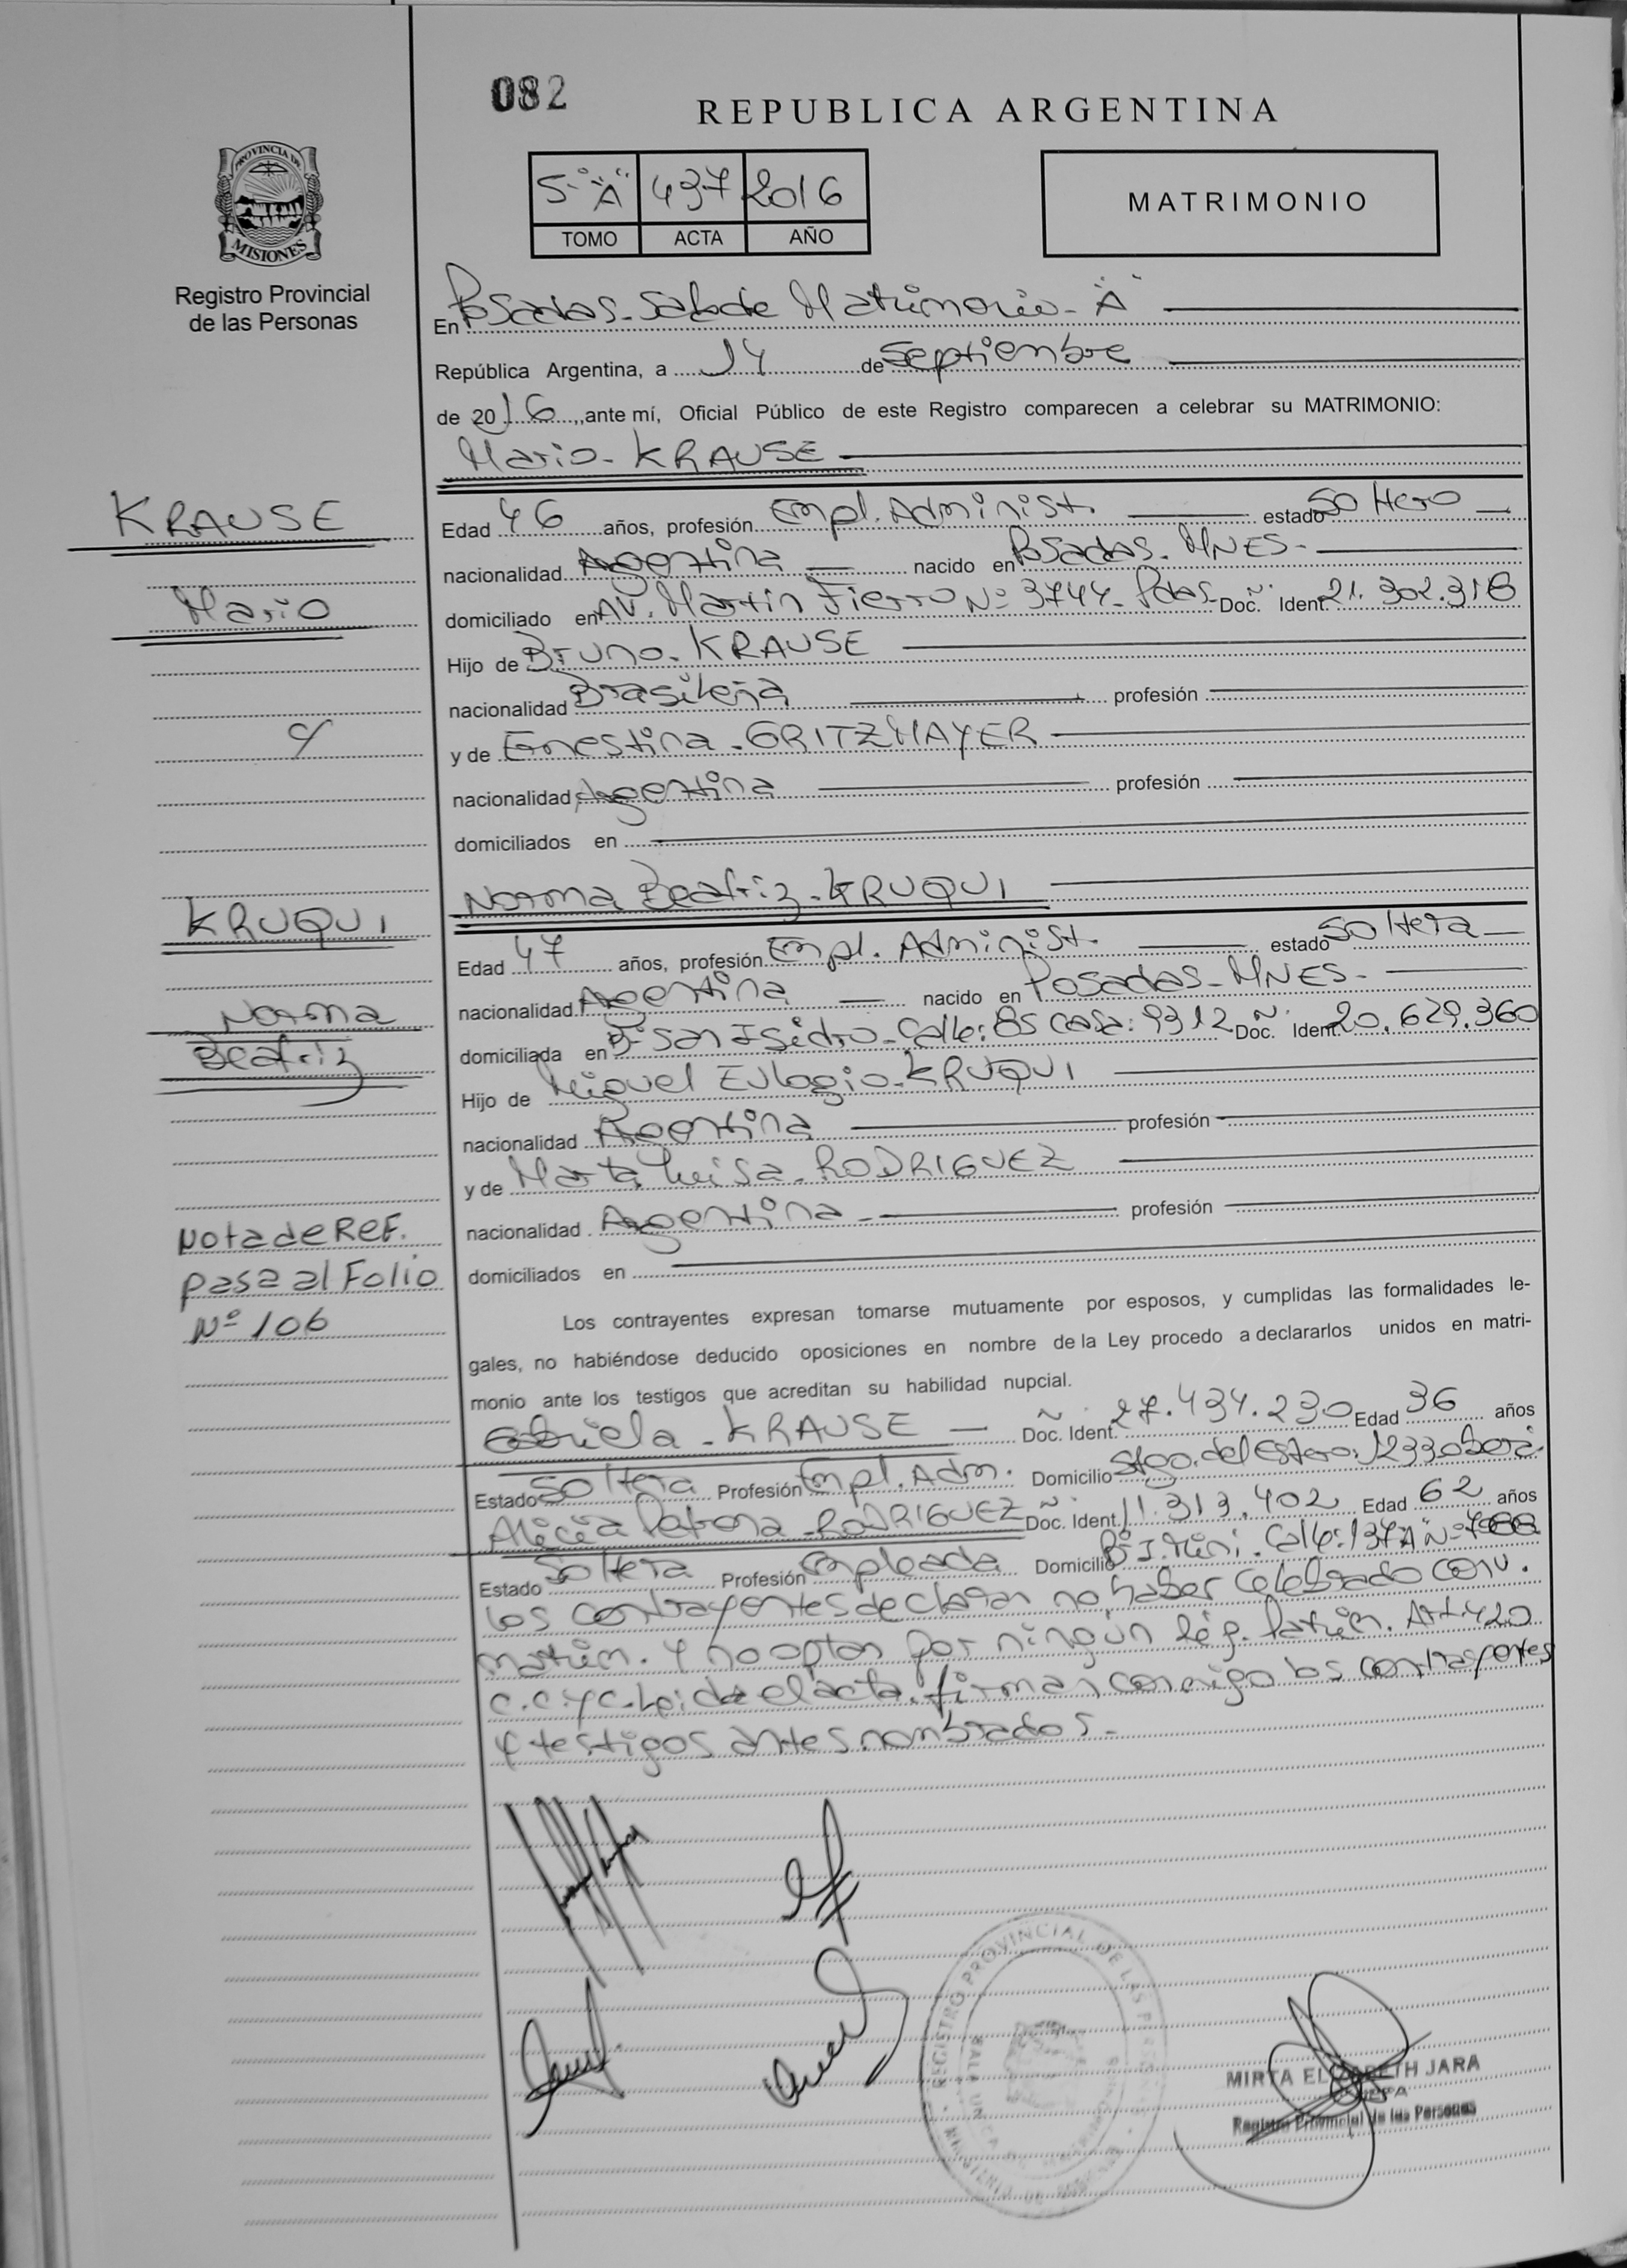 082
REPUBLICA ARGENTINA
5-"A" 437 2016
TOMO ACTA AÑO
MATRIMONIO
PROVINCIA DE
MISIONES
Registro Provincial
de las Personas
En Posadas-Sala de Matrimonio-"A"
República Argentina, a 14 de Septiembre
de 2016, ante mí, Oficial Público de este Registro comparecen a celebrar su MATRIMONIO:
Mario-KRAUSE
KRAUSE
Mario
y
KRUQUI
Norma
Beatriz
Nota de REF.
pasa al Folio
Nº 106
Edad 46 años, profesión Empl. Administ. estado Soltero
nacionalidad Argentina nacido en Posadas-MNES-
domiciliado en AV. Martin Fierro Nº 3744-Pdas. Doc. Ident. 21.302.318
Hijo de Bruno-KRAUSE
nacionalidad Brasileña profesión
y de Ernestina-GRITZMAYER
nacionalidad Argentina profesión
domiciliados en
Norma Beatriz-KRUQUI
Edad 47 años, profesión Empl. Administ. estado Soltera
nacionalidad Argentina nacido en Posadas-MNES-
domiciliada en Bº San Isidro-Calle: 85 casa: 9312 Doc. Ident. 20.629.360
Hijo de Miguel Eulogio-KRUQUI
nacionalidad Argentina profesión
y de Marta Luisa-RODRIGUEZ
nacionalidad Argentina profesión
domiciliados en
Los contrayentes expresan tomarse mutuamente por esposos, y cumplidas las formalidades le-
gales, no habiéndose deducido oposiciones en nombre de la Ley procedo a declararlos unidos en matri-
monio ante los testigos que acreditan su habilidad nupcial.
Gabriela-KRAUSE Doc. Ident. 27.434.230 Edad 36 años
Estado Soltera Profesión Empl. Adm. Domicilio Stgo. del Estero: 12330
Alicia Petrona-RODRIGUEZ Doc. Ident. 11.313.402 Edad 62 años
Estado Soltera Profesión Empleada Domicilio Bº I. Mini. Calle: 137 "A" Nº
los contrayentes declaran no haber celebrado conv.
matrim. y no optan por ningún Rég. Patrim. Art. 420
C.C.yC. Leida el acta, firman conmigo los contrayentes
y testigos antes nombrados-
REGISTRO PROVINCIAL DE LAS PERSONAS
MIRTA ELIZABETH JARA
JEFA
Registro Provincial de las Personas